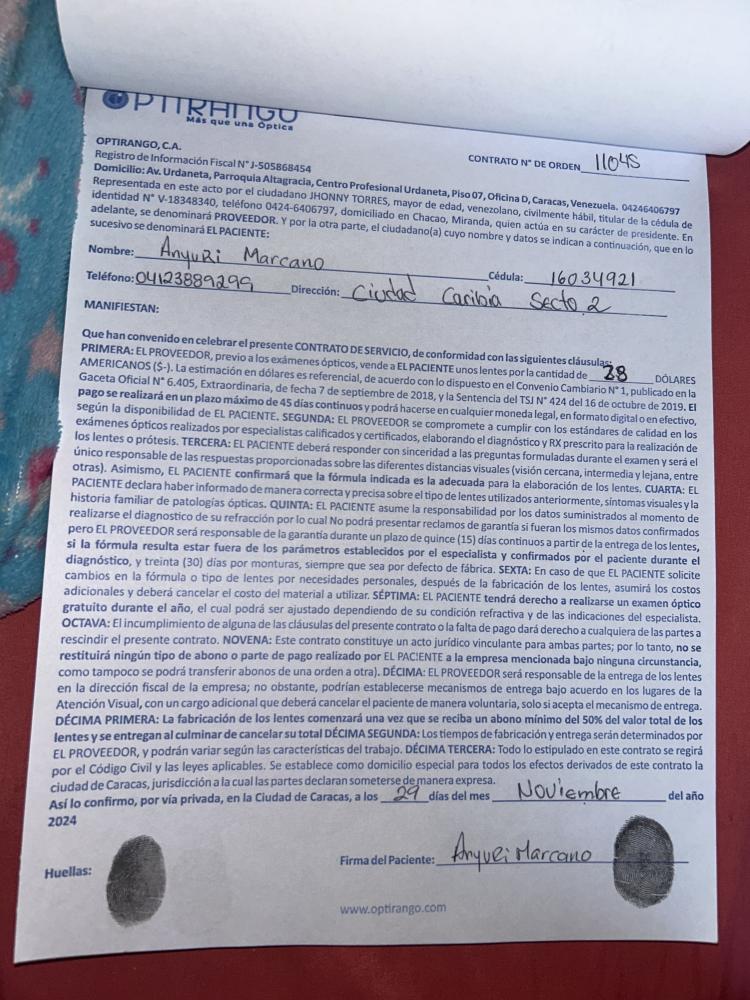 OPTIRANGO
Más que una Óptica
OPTIRANGO, C.A.
CONTRATO N° DE ORDEN 11045
Registro de Información Fiscal N° J-505868454
Domicilio: Av. Urdaneta, Parroquia Altagracia, Centro Profesional Urdaneta, Piso 07, Oficina D, Caracas, Venezuela. 04246406797
Representada en este acto por el ciudadano JHONNY TORRES, mayor de edad, venezolano, civilmente hábil, titular de la cédula de
identidad N° V-18348340, teléfono 0424-6406797, domiciliado en Chacao, Miranda, quien actúa en su carácter de presidente. En
adelante, se denominará PROVEEDOR. Y por la otra parte, el ciudadano(a) cuyo nombre y datos se indican a continuación, que en lo
sucesivo se denominará EL PACIENTE:
Nombre: Anyuri Marcano Cédula: 16034921
Teléfono: 04123889299 Dirección: Ciudad Caribia Secto 2
MANIFIESTAN:
Que han convenido en celebrar el presente CONTRATO DE SERVICIO, de conformidad con las siguientes cláusulas:
PRIMERA: EL PROVEEDOR, previo a los exámenes ópticos, vende a EL PACIENTE unos lentes por la cantidad de 28 DÓLARES
AMERICANOS ($-). La estimación en dólares es referencial, de acuerdo con lo dispuesto en el Convenio Cambiario N° 1, publicado en la
Gaceta Oficial N° 6.405, Extraordinaria, de fecha 7 de septiembre de 2018, y la Sentencia del TSJ N° 424 del 16 de octubre de 2019. El
pago se realizará en un plazo máximo de 45 días continuos y podrá hacerse en cualquier moneda legal, en formato digital o en efectivo,
según la disponibilidad de EL PACIENTE. SEGUNDA: EL PROVEEDOR se compromete a cumplir con los estándares de calidad en los
exámenes ópticos realizados por especialistas calificados y certificados, elaborando el diagnóstico y RX prescrito para la realización de
los lentes o prótesis. TERCERA: EL PACIENTE deberá responder con sinceridad a las preguntas formuladas durante el examen y será el
único responsable de las respuestas proporcionadas sobre las diferentes distancias visuales (visión cercana, intermedia y lejana, entre
otras). Asimismo, EL PACIENTE confirmará que la fórmula indicada es la adecuada para la elaboración de los lentes. CUARTA: EL
PACIENTE declara haber informado de manera correcta y precisa sobre el tipo de lentes utilizados anteriormente, síntomas visuales y la
historia familiar de patologías ópticas. QUINTA: EL PACIENTE asume la responsabilidad por los datos suministrados al momento de
realizarse el diagnostico de su refracción por lo cual No podrá presentar reclamos de garantía si fueran los mismos datos confirmados
pero EL PROVEEDOR será responsable de la garantía durante un plazo de quince (15) días continuos a partir de la entrega de los lentes,
si la fórmula resulta estar fuera de los parámetros establecidos por el especialista y confirmados por el paciente durante el
diagnóstico, y treinta (30) días por monturas, siempre que sea por defecto de fábrica. SEXTA: En caso de que EL PACIENTE solicite
cambios en la fórmula o tipo de lentes por necesidades personales, después de la fabricación de los lentes, asumirá los costos
adicionales y deberá cancelar el costo del material a utilizar. SÉPTIMA: EL PACIENTE tendrá derecho a realizarse un examen óptico
gratuito durante el año, el cual podrá ser ajustado dependiendo de su condición refractiva y de las indicaciones del especialista.
OCTAVA: El incumplimiento de alguna de las cláusulas del presente contrato o la falta de pago dará derecho a cualquiera de las partes a
rescindir el presente contrato. NOVENA: Este contrato constituye un acto jurídico vinculante para ambas partes; por lo tanto, no se
restituirá ningún tipo de abono o parte de pago realizado por EL PACIENTE a la empresa mencionada bajo ninguna circunstancia,
como tampoco se podrá transferir abonos de una orden a otra). DÉCIMA: EL PROVEEDOR será responsable de la entrega de los lentes
en la dirección fiscal de la empresa; no obstante, podrían establecerse mecanismos de entrega bajo acuerdo en los lugares de la
Atención Visual, con un cargo adicional que deberá cancelar el paciente de manera voluntaria, solo si acepta el mecanismo de entrega.
DÉCIMA PRIMERA: La fabricación de los lentes comenzará una vez que se reciba un abono mínimo del 50% del valor total de los
lentes y se entregan al culminar de cancelar su total DÉCIMA SEGUNDA: Los tiempos de fabricación y entrega serán determinados por
EL PROVEEDOR, y podrán variar según las características del trabajo. DÉCIMA TERCERA: Todo lo estipulado en este contrato se regirá
por el Código Civil y las leyes aplicables. Se establece como domicilio especial para todos los efectos derivados de este contrato la
ciudad de Caracas, jurisdicción a la cual las partes declaran someterse de manera expresa.
Así lo confirmo, por vía privada, en la Ciudad de Caracas, a los 29 días del mes Noviembre del año
2024
Huellas:
Firma del Paciente: Anyuri Marcano
www.optirango.com